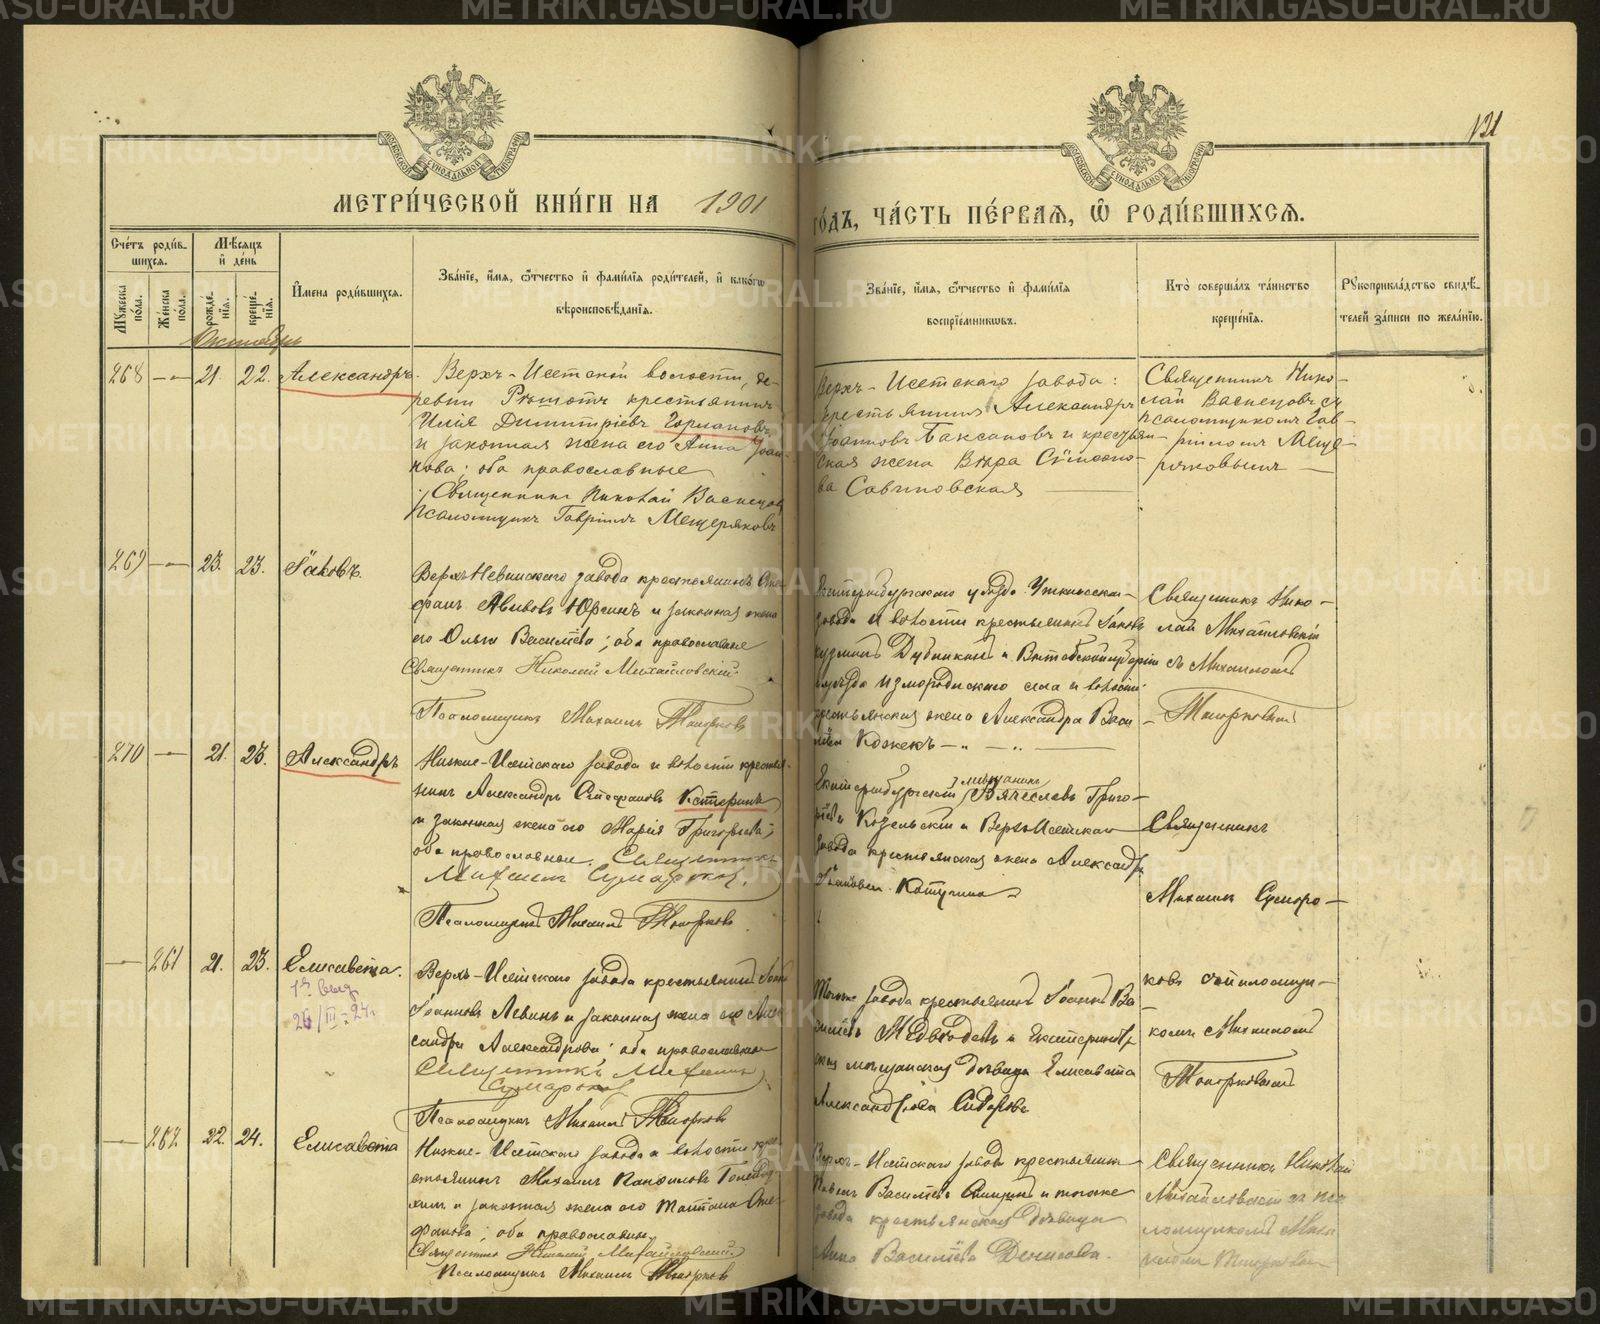 131
МЕТРИ́ЧЕСКОЙ КНИ́ГИ НА 1901
ГО́ДЪ, ЧА́СТЬ ПЕ́РВАЯ, Ѿ РОДИ́ВШИХСЯ.
Сче́тъ роди́в-
шихся.
Мѣ́сяцъ
и҆ де́нь
Мꙋ́жеска по́ла.
Же́нска по́ла.
рожде́нїя.
креще́нїя.
И҆мена роди́вшихся.
Зва́нїе, и҆́мя, ѻ҆́тчество и҆ фами́лїя роди́телей, и҆ како́гѡ
вѣроисповѣ́данїя.
Зва́нїе, и҆́мя, ѻ҆́тчество и҆ фами́лїя
воспрїе́мниковъ.
Кто̀ соверша́лъ та́инство
креще́нїя.
Рꙋкоприкла́дство свидѣ́-
телей за́писи по жела́нїю.
Октябрь
268 — 21. 22. Александръ.
Верхъ-Исетской волости, де-
ревни Рѣшотъ крестьянинъ
Илія Димитріевъ
и законная жена его Анна Іоан-
нова; оба православные
Священникъ Николай Васнецов
Псаломщикъ Гавріилъ Мещеряковъ
Верхъ-Исетскаго завода:
крестьянинъ Александръ
Іоанновъ Баксановъ и крестьян-
ская жена Вѣра Сѵмеоно-
ва Савиновская
Священникъ Нико-
лай Васнецовъ съ
псаломщикомъ Гав-
ріиломъ Меще-
ряковымъ
269 — 23. 23. Іаковъ.
Верхъ-Невинскаго завода крестьянинъ Сте-
фанъ Авивовъ Юринъ и законная жена
его Ольга Василіева; оба православные
Священникъ Николай Михайловскій
Псаломщикъ Михаилъ Топорковъ
Екатеринбургскаго уѣзда Уткинскаго
завода и волости крестьянинъ Іаковъ
Дубинкинъ и Витебской губерніи
села и волости
крестьянская жена Александра Васи-
ліева Кожекъ
Священникъ Нико-
лай Михайловскій
съ Михаиломъ
Топорковымъ
270 — 21. 23. Александръ
Нижне-Исетскаго завода и волости крестья-
нинъ Александръ Стефановъ Кетеринъ
и законная жена его Марія Григорьева;
оба православные. Священникъ
Михаилъ Сумароков.
Псаломщикъ Михаилъ Топорковъ
Екатеринбургскій мѣщанинъ Вячеславъ Григо-
ріевъ Козельскій и Верхъ-Исетскаго
завода крестьянская жена Александра
Катугина
Священникъ
Михаилъ Сумаро-
ковъ съ псаломщи-
комъ Михаиломъ
Топорковымъ
— 261 21. 23. Елисавета.
1й выд.
Верхъ-Исетскаго завода крестьянинъ Іоаннъ
Іоанновъ Левинъ и законная жена его Алек-
сандра Александрова; оба православные
Священникъ Михаилъ
Сумароков
Псаломщикъ Михаилъ Топорковъ
Тогоже завода крестьянинъ Іоаннъ Ва-
силіевъ Медвѣдевъ и Екатеринбург-
ская мѣщанская дѣвица Елисавета
Александрова Сидорова
— 262 22. 24. Елисавета
Нижне-Исетскаго завода и волости кре-
стьянинъ Михаилъ
и законная жена его Татіана Сте-
фанова; оба православные
Священникъ Николай Михайловский.
Псаломщикъ Михаилъ Топорковъ
Верхъ-Исетскаго завода крестьянинъ
Павелъ Василіевъ и тогоже
завода крестьянская дѣвица
Анна Василіева Денисова.
Священникъ Николай
Михайловскій съ пса-
ломщикомъ Миха-
иломъ Топорковымъ